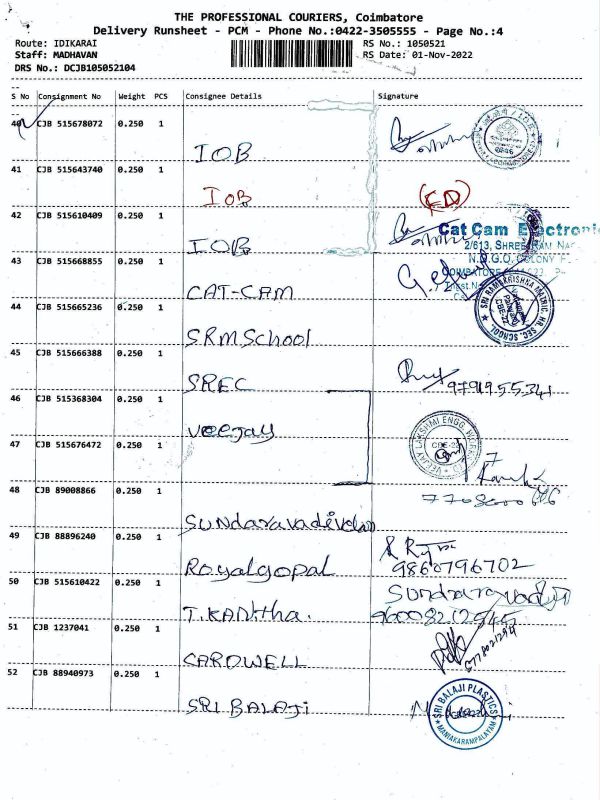 THE PROFESSIONAL COURIERS, Coimbatore
Delivery Runsheet - PCM - Phone No.:0422-3505555 - Page No.:4
Route: IDIKARAI RS No.: 1050521
Staff: MADHAVAN RS Date: 01-Nov-2022
DRS No.: DCJB105052104
S No Consignment No Weight PCS Consignee Details Signature
40 CJB 515678072 0.250 1
IOB
41 CJB 515643740 0.250 1
IOB
42 CJB 515610409 0.250 1
IOB
Cat Cam Electroni
2/613, SHREE RAM NAG
N.G.G.O. COLONY P
43 CJB 515668855 0.250 1
CAT-CAM
SRI RAMAKRISHNA MATRIC. HR. SEC. SCHOOL
44 CJB 515665236 0.250 1
SRM School
45 CJB 515666388 0.250 1
SREC
9791955341
46 CJB 515368304 0.250 1
veejay
47 CJB 515676472 0.250 1
48 CJB 89008866 0.250 1
Sundaravadivelan
49 CJB 88896240 0.250 1
Royalgopal
9860796702
50 CJB 515610422 0.250 1
96008212545
51 CJB 1237041 0.250 1
CARDWELL
52 CJB 88940973 0.250 1
SRI BALAJI
SRI BALAJI PLASTICS
MANIAKARAMPALAYAM